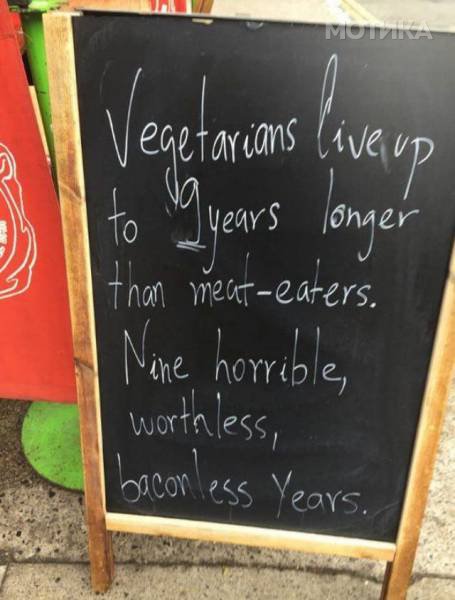 МОТИКА
Vegetarians live up
to 9 years longer
than meat-eaters.
Nine horrible,
worthless,
baconless years.